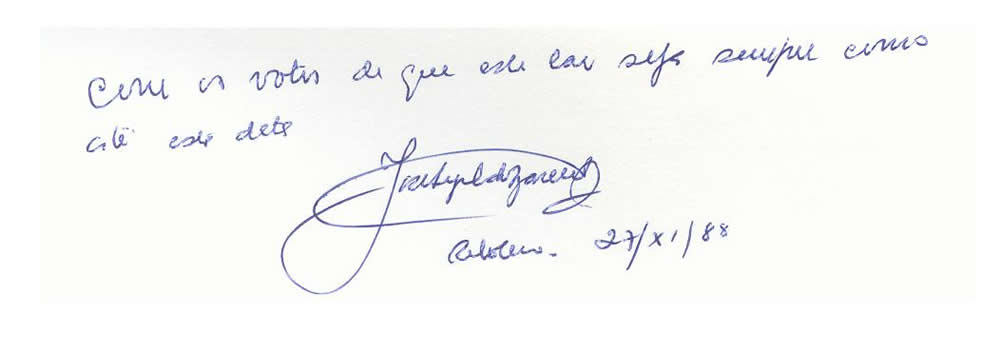 Com os votos de que este lar seja sempre como
até esta data
27/XI/88